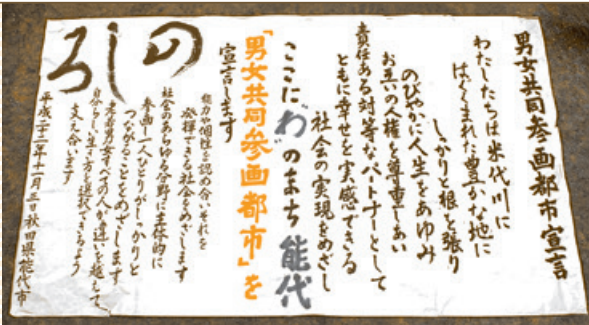 男女共同参画都市宣言
わたしたちは米代川に
はぐくまれた豊かな地に
しっかりと根を張り
のびやかに人生をあゆみ
お互いの人権を尊重しあい
責任ある対等なパートナーとして
ともに幸せを実感できる
社会の実現をめざし
ここに“わ”のまち能代
「男女共同参画都市」を
宣言します
のしろ
能力や個性を認め合いそれを
発揮できる社会をめざします
社会のあらゆる分野に主体的に
参画し一人ひとりがしっかりと
つながることをめざします
老若男女すべての人が違いを越えて
自分らしい生き方を選択できるよう
支え合います
平成二十二年十一月三日 秋田県能代市